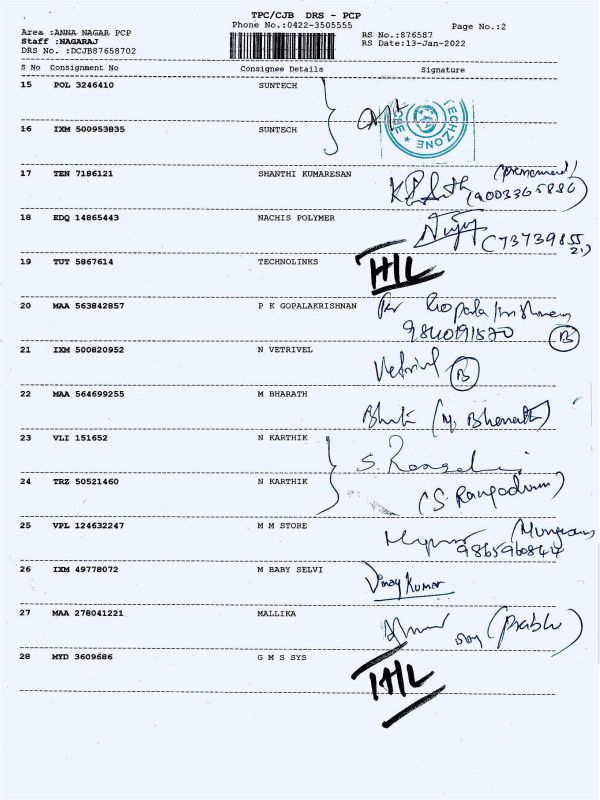 TPC/CJB DRS - PCP
Phone No.:0422-3505555
Page No.:2
Area :ANNA NAGAR PCP
Staff :NAGARAJ
DRS No. :DCJB87658702
RS No.:876587
RS Date:13-Jan-2022
S No Consignment No Consignee Details Signature
15 POL 3246410 SUNTECH
16 IXM 500953835 SUNTECH
TECHZONE
17 TEN 7186121 SHANTHI KUMARESAN
(9003365886)
18 EDQ 14865443 NACHIS POLYMER
19 TUT 5867614 TECHNOLINKS
20 MAA 563842857 P K GOPALAKRISHNAN
9840191570
21 IXM 500820952 N VETRIVEL Vetrivel
22 MAA 564699255 M BHARATH (M. Bharath)
23 VLI 151652 N KARTHIK
24 TRZ 50521460 N KARTHIK
25 VPL 124632247 M M STORE
9865960844
26 IXM 49778072 M BABY SELVI Vinay Kumar
27 MAA 278041221 MALLIKA (Prabhu)
28 MYD 3609686 G M S SYS